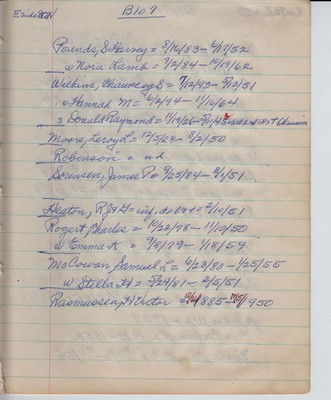 E side N
B107
Pounds, S Harvey = 8/16/83 - 6/17/52
w Nora Lamb = 7/2/84 - 10/19/62
Wilkins, Chauncey S = 7/12/93 - 8/13/51
w Hannah M = 6/2/94 - 11/10/64
s Donald Raymond = 1/19/26 - 5/1/45
Moore, Leroy L = 12/5/69 - 8/2/50
Robinson = nd
Sorensen, James P = 9/25/84 - 2/1/51
Heaton, R J & H = inf. da 19 + = 2/10/51
Rogert, Charles = 10/22/78 - 11/10/50
w Emma K = 9/8/79 - 1/18/59
McCowan, Samuel L = 6/23/80 - 1/25/55
w Stella H = 5/24/81 - 2/5/51
Rasmussen, H Victor = 1885 - 1950